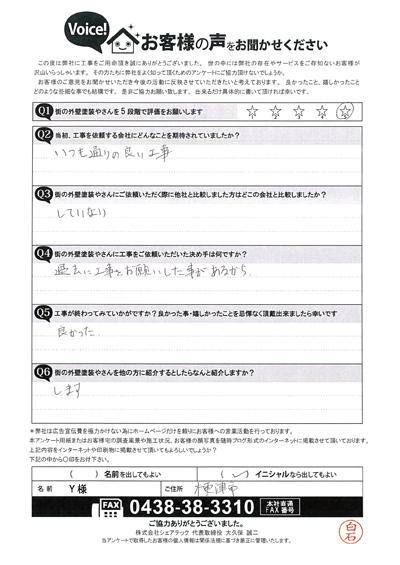 Voice!
お客様の声をお聞かせください
この度は弊社に工事をご用命頂き誠にありがとうございました。 世の中には弊社の存在やサービスをご存知ないお客様が
沢山いらっしゃいます。 その方たちに弊社をよく知って頂くためのアンケートにご協力頂けないでしょうか。
お客様のご意見をお聞かせいただき今後の活動に反映させていただきたいと考えております。 良かったこと、嬉しかったこと
どのような些細な事でも結構です。 是非ご協力お願い致します。 出来るだけ具体的に書いて頂ければ幸いです。
Q1 街の外壁塗装やさんを5段階で評価をお願いします ☆ ☆ ☆ ☆ ☆
Q2 当初、工事を依頼する会社にどんなことを期待されていましたか?
いつも通りの良い工事
Q3 街の外壁塗装やさんにご依頼いただく際に他社と比較しました方はどこの会社と比較しましたか?
していない
Q4 街の外壁塗装やさんに工事をご依頼いただいた決め手は何ですか?
過去に工事をお願いした事があるから
Q5 工事が終わってみていかがですか?良かった事・嬉しかったことを忌憚なく頂戴出来ましたら幸いです
良かった
Q6 街の外壁塗装やさんを他の方に紹介するとしたらなんと紹介しますか?
します
＊弊社は広告宣伝費を極力かけない為にホームページだけを頼りにお客様への営業活動を行っております。
本アンケート用紙またはお客様宅の調査風景や施工状況、お客様の顔写真を随時ブログ形式のインターネットに掲載させて頂いております。
上記内容をインターネットや印刷物に掲載させて頂いてもよろしいでしょうか?
下記の中から〇印をお付下さい。
( ) 名前を出してもよい ( ✓ ) イニシャルなら出してもよい
名前 Y様 ご住所 木更津市
FAX 0438-38-3310 本社直通 FAX番号
ご協力ありがとうございました。
株式会社シェアテック 代表取締役 大久保 誠二
当アンケートで取得したお客様の個人情報は関係法規に基づき厳正に管理いたします。
白石